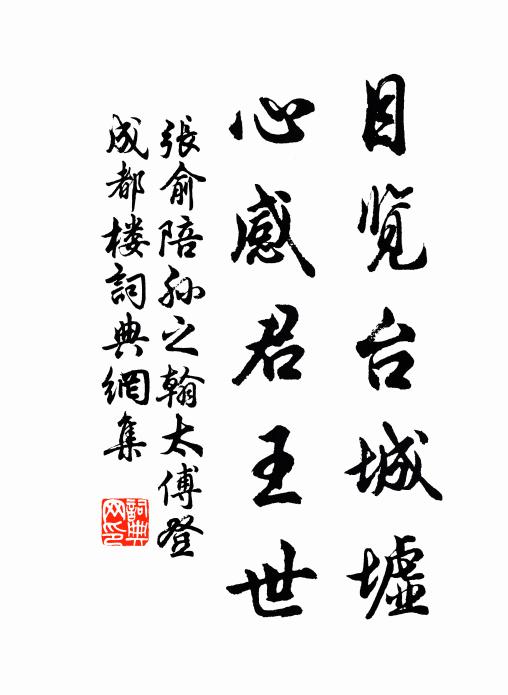 目览台城墟
心感君王世
張俞陪孙之翰太傅登
成都楼詞典網集
詞典
网印